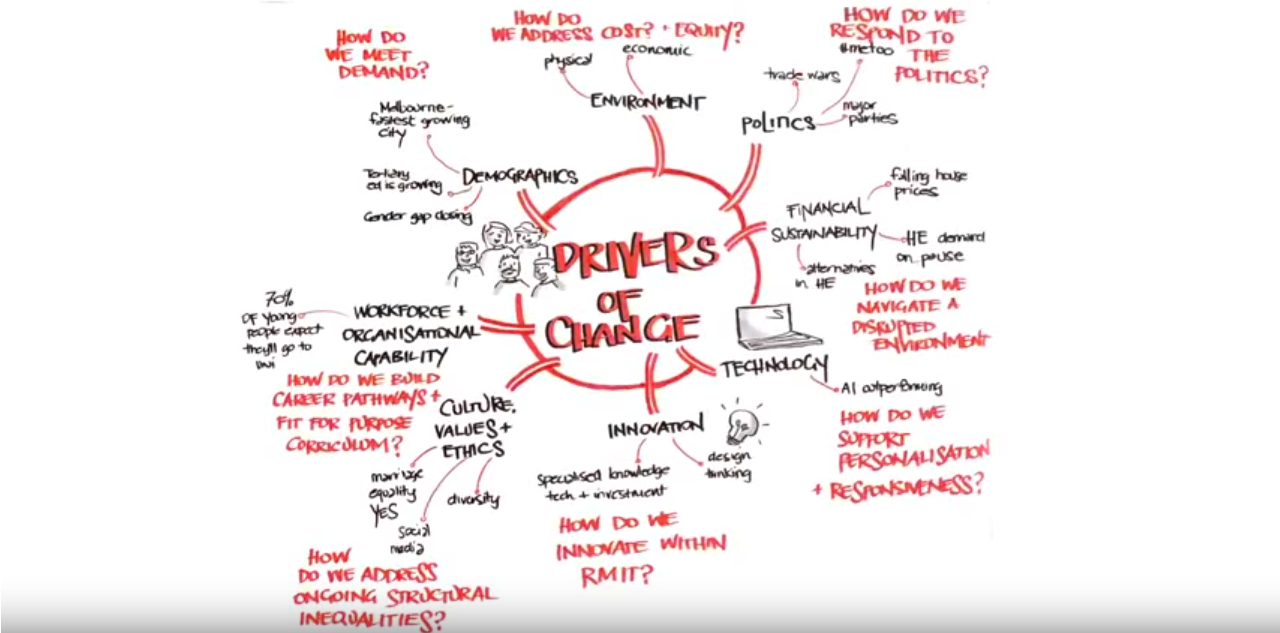 HOW DO
WE MEET
DEMAND?
Melbourne-
fastest growing
city
Tertiary
ed is growing
Gender gap closing
DEMOGRAPHICS
HOW DO
WE ADDRESS COST? + EQUITY?
physical
economic
ENVIRONMENT
HOW DO WE
RESPOND TO
THE
POLITICS?
#metoo
trade wars
major
parties
POLITICS
falling house
prices
FINANCIAL
SUSTAINABILITY
HE demand
on pause
alternatives
in HE
HOW DO WE
NAVIGATE A
DISRUPTED
ENVIRONMENT
DRIVERS
OF
CHANGE
TECHNOLOGY
AI outperforming
HOW DO WE
SUPPORT
PERSONALISATION
+ RESPONSIVENESS?
INNOVATION
design
thinking
specialised knowledge
tech + investment
HOW DO WE
INNOVATE WITHIN
RMIT?
CULTURE,
VALUES +
ETHICS
marriage
equality
YES
social
media
diversity
HOW
DO WE ADDRESS
ONGOING STRUCTURAL
INEQUALITIES?
WORKFORCE +
ORGANISATIONAL
CAPABILITY
70%
OF young
people expect
they'll go to
uni
HOW DO WE BUILD
CAREER PATHWAYS +
FIT FOR PURPOSE
CORRICULUM?